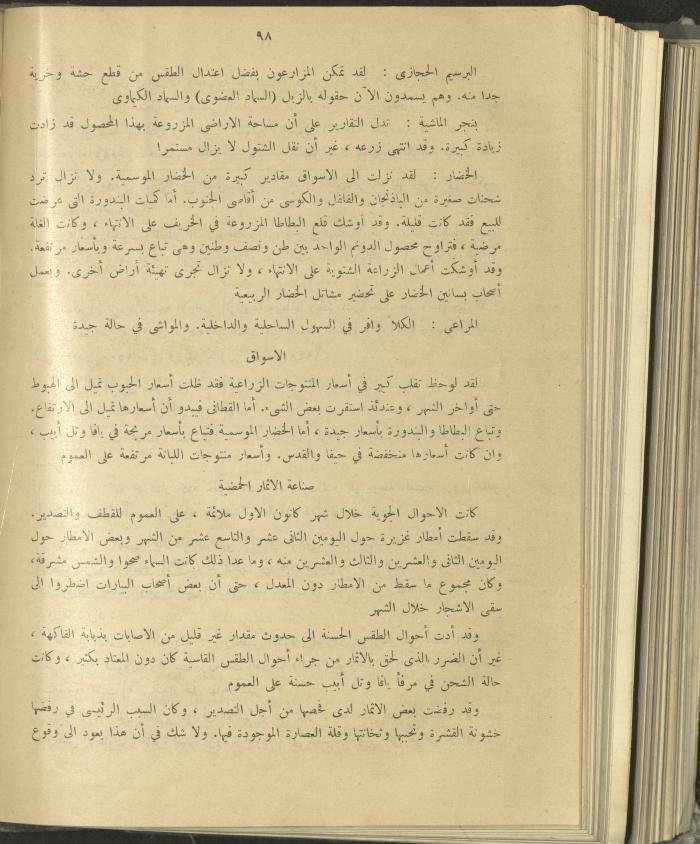 ٩٨
البرسيم الحجازى : لقد تمكن المزارعون بفضل اعتدال الطقس من قطع حشة وخرية
جدا منه. وهم يسمدون الآن حقوله بالزبل (السماد العضوى) والسماد الكيماوى
بنجر الماشية : تدل التقارير على أن مساحة الاراضى المزروعة بهذا المحصول قد زادت
زيادة كبيرة. وقد انتهى زرعه ، غير أن نقل الشتول لا يزال مستمرا
الخضار : لقد نزلت الى الاسواق مقادير كبيرة من الخضار الموسمية. ولا تزال ترد
شحنات صغيرة من الباذنجان والفلفل والكوسى من أقاصى الجنوب. أما كميات البندورة التى عرضت
للبيع فقد كانت قليلة. وقد أوشك قلع البطاطا المزروعة في الخريف على الانتهاء ، وكانت الغلة
مرضية ، فتراوح محصول الدونم الواحد بين طن ونصف وطنين وهى تباع بسرعة وبأسعار مرتفعة.
وقد أوشكت أعمال الزراعة الشتوية على الانتهاء ، ولا تزال تجرى تهيئة أراض أخرى. ويعمل
أصحاب بساتين الخضار على تحضير مشاتل الخضار الربيعية
المراعى : الكلا وافر في السهول الساحلية والداخلية. والمواشى في حالة جيدة
الاسواق
لقد لوحظ تقلب كبير في أسعار المنتوجات الزراعية فقد ظلت أسعار الحبوب تميل الى الهبوط
حتى أواخر الشهر ، وعندئذ استقرت بعض الشىء. أما القطانى فيبدو أن أسعارها تميل الى الارتفاع.
وتباع البطاطا والبندورة بأسعار جيدة ، أما الخضار الموسمية فتباع بأسعار مربحة في يافا وتل أبيب ،
وان كانت أسعارها منخفضة في حيفا والقدس. وأسعار منتوجات اللبانة مرتفعة على العموم
صناعة الاثمار الحمضية
كانت الاحوال الجوية خلال شهر كانون الاول ملائمة ، على العموم للقطف والتصدير.
وقد سقطت أمطار غزيرة حول اليومين الثانى عشر والتاسع عشر من الشهر وبعض الامطار حول
اليومين الثانى والعشرين والثالث والعشرين منه ، وما عدا ذلك كانت السماء صحوا والشمس مشرقة،
وكان مجموع ما سقط من الامطار دون المعدل ، حتى أن بعض أصحاب البيارات اضطروا الى
سقى الاشجار خلال الشهر
وقد أدت أحوال الطقس الحسنة الى حدوث مقدار غير قليل من الاصابات بذبابة الفاكهة ،
غير أن الضرر الذى لحق بالاثمار من جراء أحوال الطقس القاسية كان دون المعتاد بكثير ، وكانت
حالة الشحن في مرفأ يافا وتل أبيب حسنة على العموم
وقد رفضت بعض الاثمار لدى فحصها من أجل التصدير ، وكان السبب الرئيسى في رفضها
خشونة القشرة وتحببها وثخانتها وقلة العصارة الموجودة فيها. ولا شك في أن هذا يعود الى وقوع